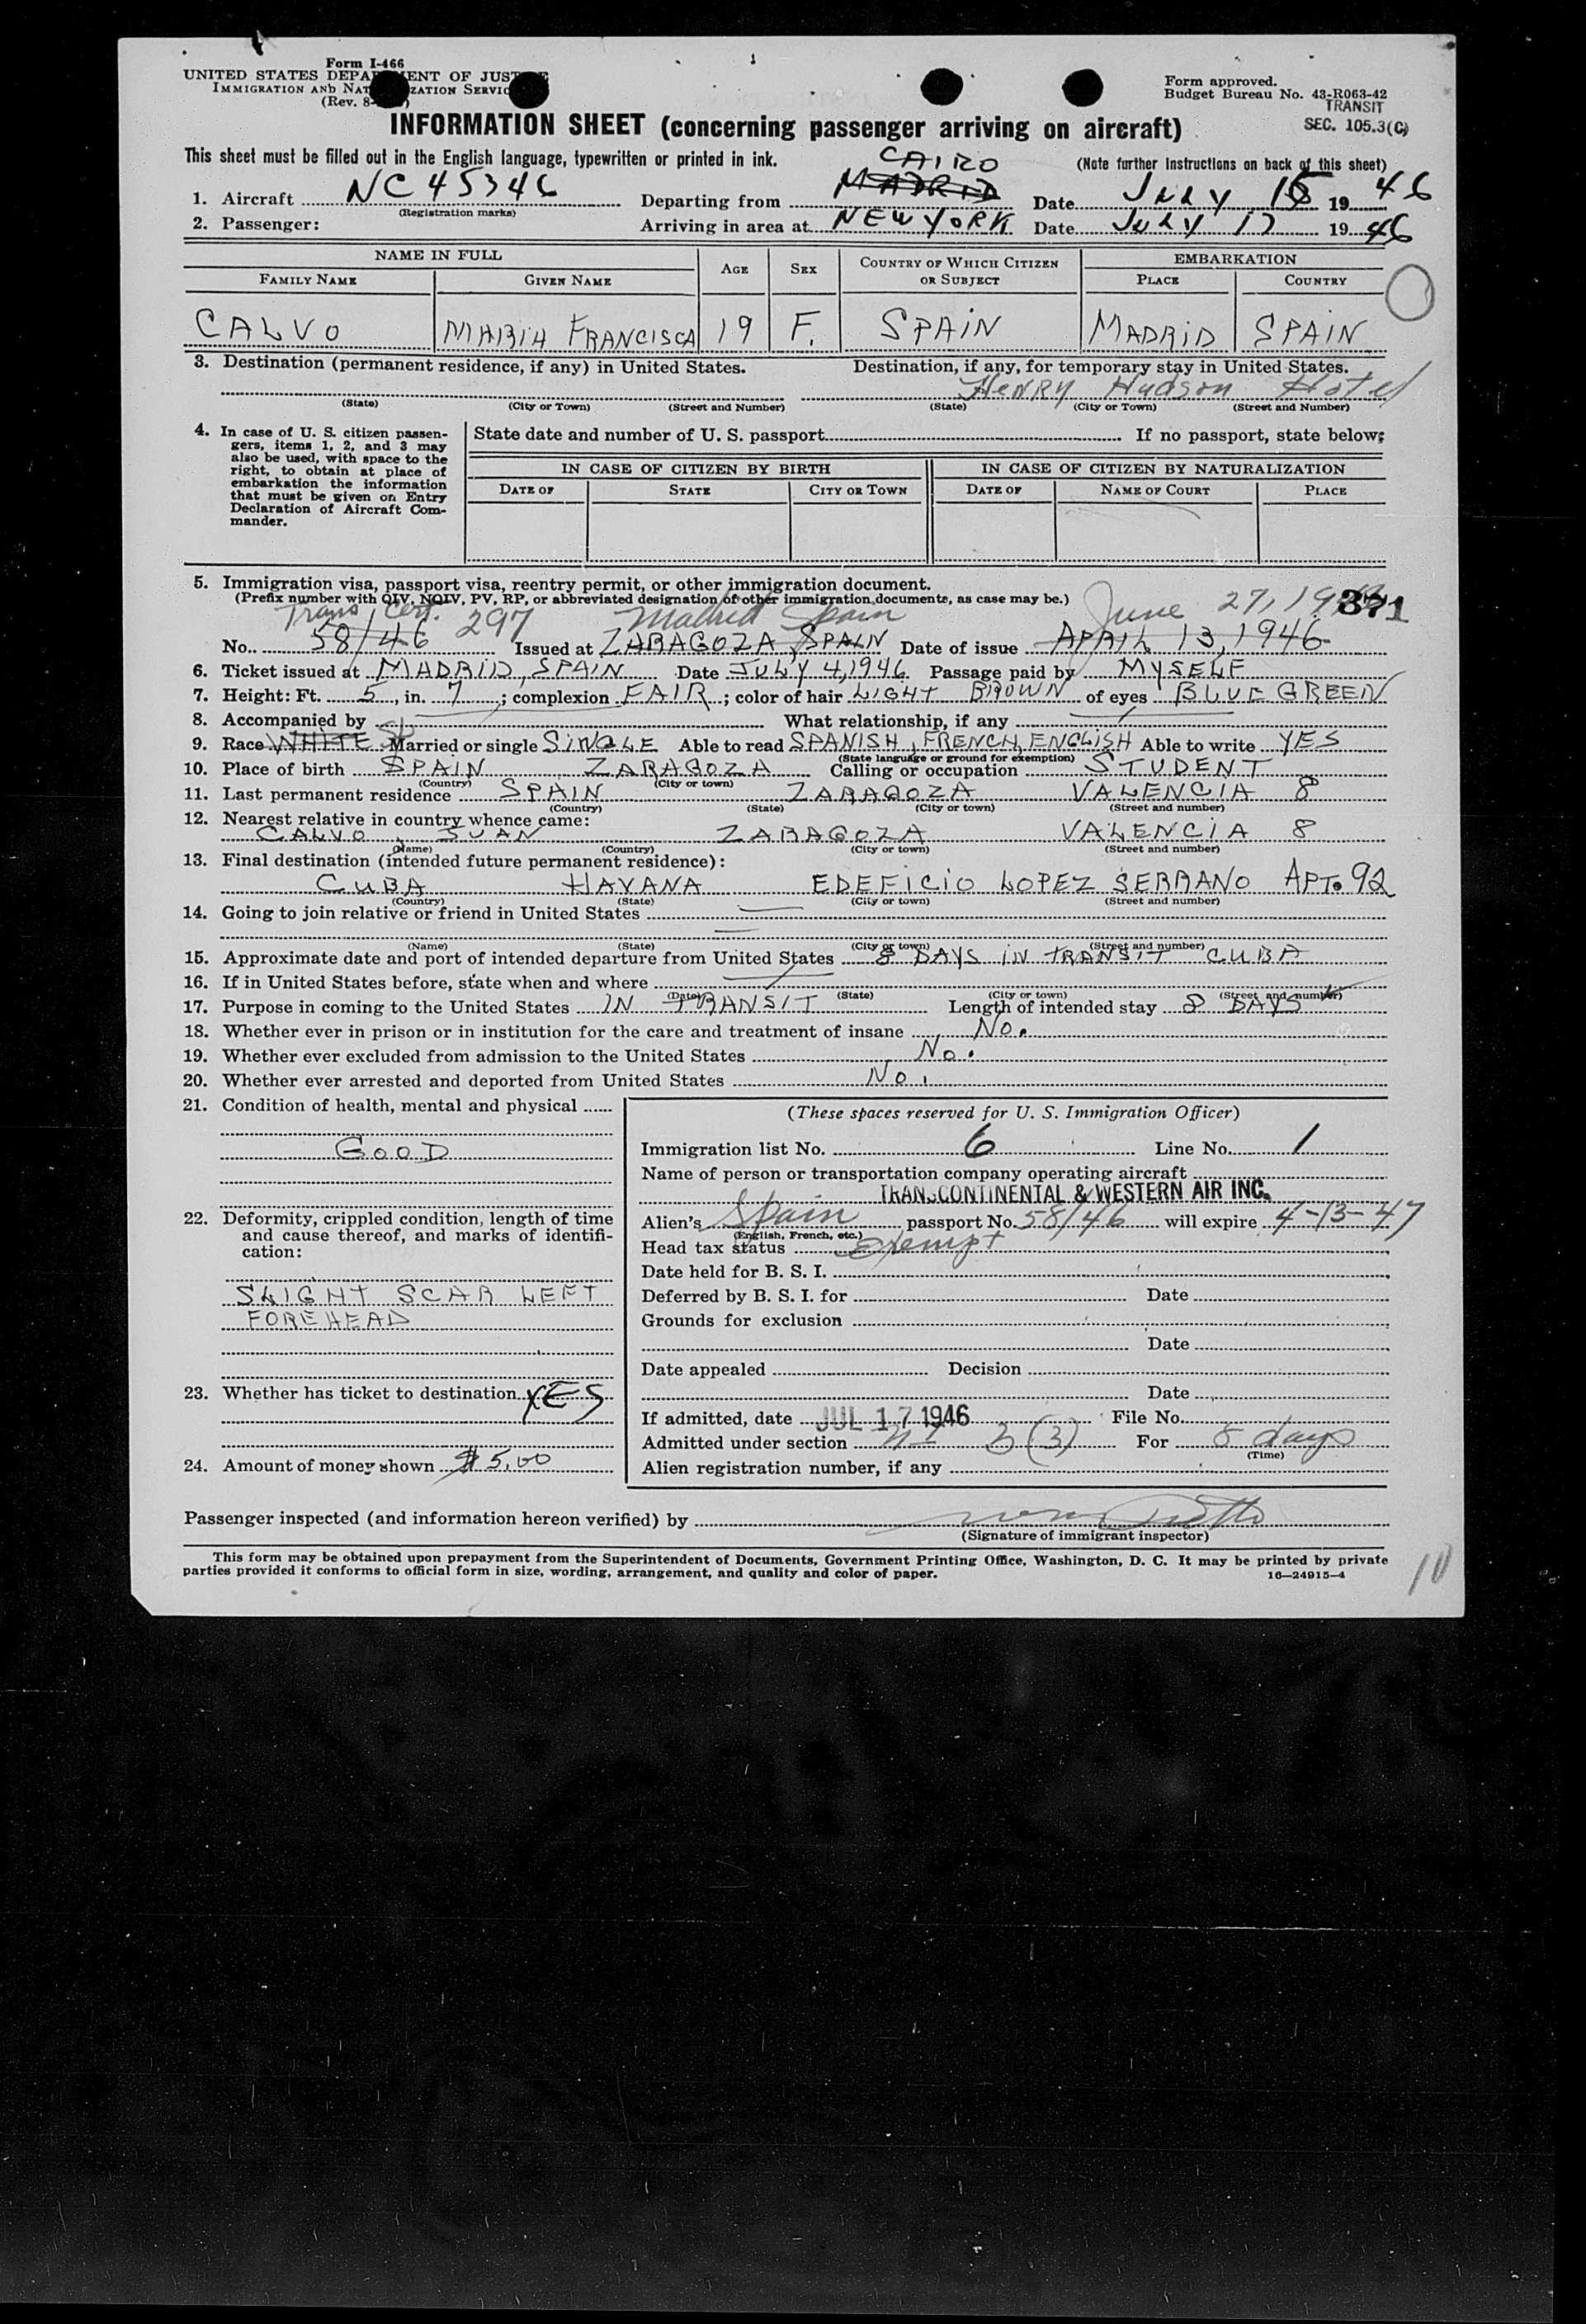 Form I-466
UNITED STATES DEPARTMENT OF JUSTICE
IMMIGRATION AND NATURALIZATION SERVICE
(Rev. 8-
Form approved.
Budget Bureau No. 43-R063-42
TRANSIT
SEC. 105.3(C)
INFORMATION SHEET (concerning passenger arriving on aircraft)
This sheet must be filled out in the English language, typewritten or printed in ink. (Note further instructions on back of this sheet)
CAIRO
1. Aircraft NC 45346 Departing from MADRID Date July 16 1946
(Registration marks)
2. Passenger: Arriving in area at NEW YORK Date July 17 1946
NAME IN FULL AGE SEX COUNTRY OF WHICH CITIZEN OR SUBJECT EMBARKATION
FAMILY NAME GIVEN NAME PLACE COUNTRY
CALVO MARIA FRANCISCA 19 F. SPAIN MADRID SPAIN
3. Destination (permanent residence, if any) in United States. Destination, if any, for temporary stay in United States.
Henry Hudson Hotel
(State) (City or Town) (Street and Number) (State) (City or Town) (Street and Number)
4. In case of U. S. citizen passengers, items 1, 2, and 3 may also be used, with space to the right, to obtain at place of embarkation the information that must be given on Entry Declaration of Aircraft Commander.
State date and number of U. S. passport If no passport, state below:
IN CASE OF CITIZEN BY BIRTH IN CASE OF CITIZEN BY NATURALIZATION
DATE OF STATE CITY OR TOWN DATE OF NAME OF COURT PLACE
5. Immigration visa, passport visa, reentry permit, or other immigration document.
(Prefix number with QIV, NQIV, PV, RP, or abbreviated designation of other immigration documents, as case may be.)
Trans. Cert. 297 Madrid Spain June 27, 1946 371
No. 58/46 Issued at ZARAGOZA, SPAIN Date of issue APRIL 13, 1946
6. Ticket issued at MADRID, SPAIN Date JULY 4, 1946 Passage paid by MYSELF
7. Height: Ft. 5, in. 7; complexion FAIR; color of hair LIGHT BROWN of eyes BLUE GREEN
8. Accompanied by What relationship, if any
9. Race WHITE Sp Married or single SINGLE Able to read SPANISH, FRENCH, ENGLISH Able to write YES
(State language or ground for exemption)
10. Place of birth SPAIN ZARAGOZA Calling or occupation STUDENT
(Country) (City or town)
11. Last permanent residence SPAIN ZARAGOZA VALENCIA 8
(Country) (State) (City or town) (Street and number)
12. Nearest relative in country whence came:
CALVO, JUAN ZARAGOZA VALENCIA 8
(Name) (Country) (City or town) (Street and number)
13. Final destination (intended future permanent residence):
CUBA HAVANA EDEFICIO LOPEZ SERRANO APTO 92
(Country) (State) (City or town) (Street and number)
14. Going to join relative or friend in United States
(Name) (State) (City or town) (Street and number)
15. Approximate date and port of intended departure from United States 8 DAYS IN TRANSIT CUBA
16. If in United States before, state when and where
(Date) (State) (City or town) (Street and number)
17. Purpose in coming to the United States IN TRANSIT Length of intended stay 8 DAYS
18. Whether ever in prison or in institution for the care and treatment of insane No.
19. Whether ever excluded from admission to the United States No.
20. Whether ever arrested and deported from United States No.
21. Condition of health, mental and physical
GOOD
22. Deformity, crippled condition, length of time and cause thereof, and marks of identification:
SLIGHT SCAR LEFT
FOREHEAD
23. Whether has ticket to destination YES
24. Amount of money shown $5.00
(These spaces reserved for U. S. Immigration Officer)
Immigration list No. 6 Line No. 1
Name of person or transportation company operating aircraft
TRANSCONTINENTAL & WESTERN AIR INC.
Alien's Spain passport No. 58/46 will expire 4-13-47
(English, French, etc.)
Head tax status Exempt
Date held for B. S. I.
Deferred by B. S. I. for Date
Grounds for exclusion
Date
Date appealed Decision
Date
If admitted, date JUL 17 1946 File No.
Admitted under section 3(3) For 8 days
(Time)
Alien registration number, if any
Passenger inspected (and information hereon verified) by
(Signature of immigrant inspector)
This form may be obtained upon prepayment from the Superintendent of Documents, Government Printing Office, Washington, D. C. It may be printed by private
parties provided it conforms to official form in size, wording, arrangement, and quality and color of paper. 16—24915-4
10